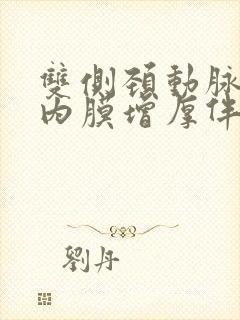 雙側頸動脉
内膜增厚伴
劉丹